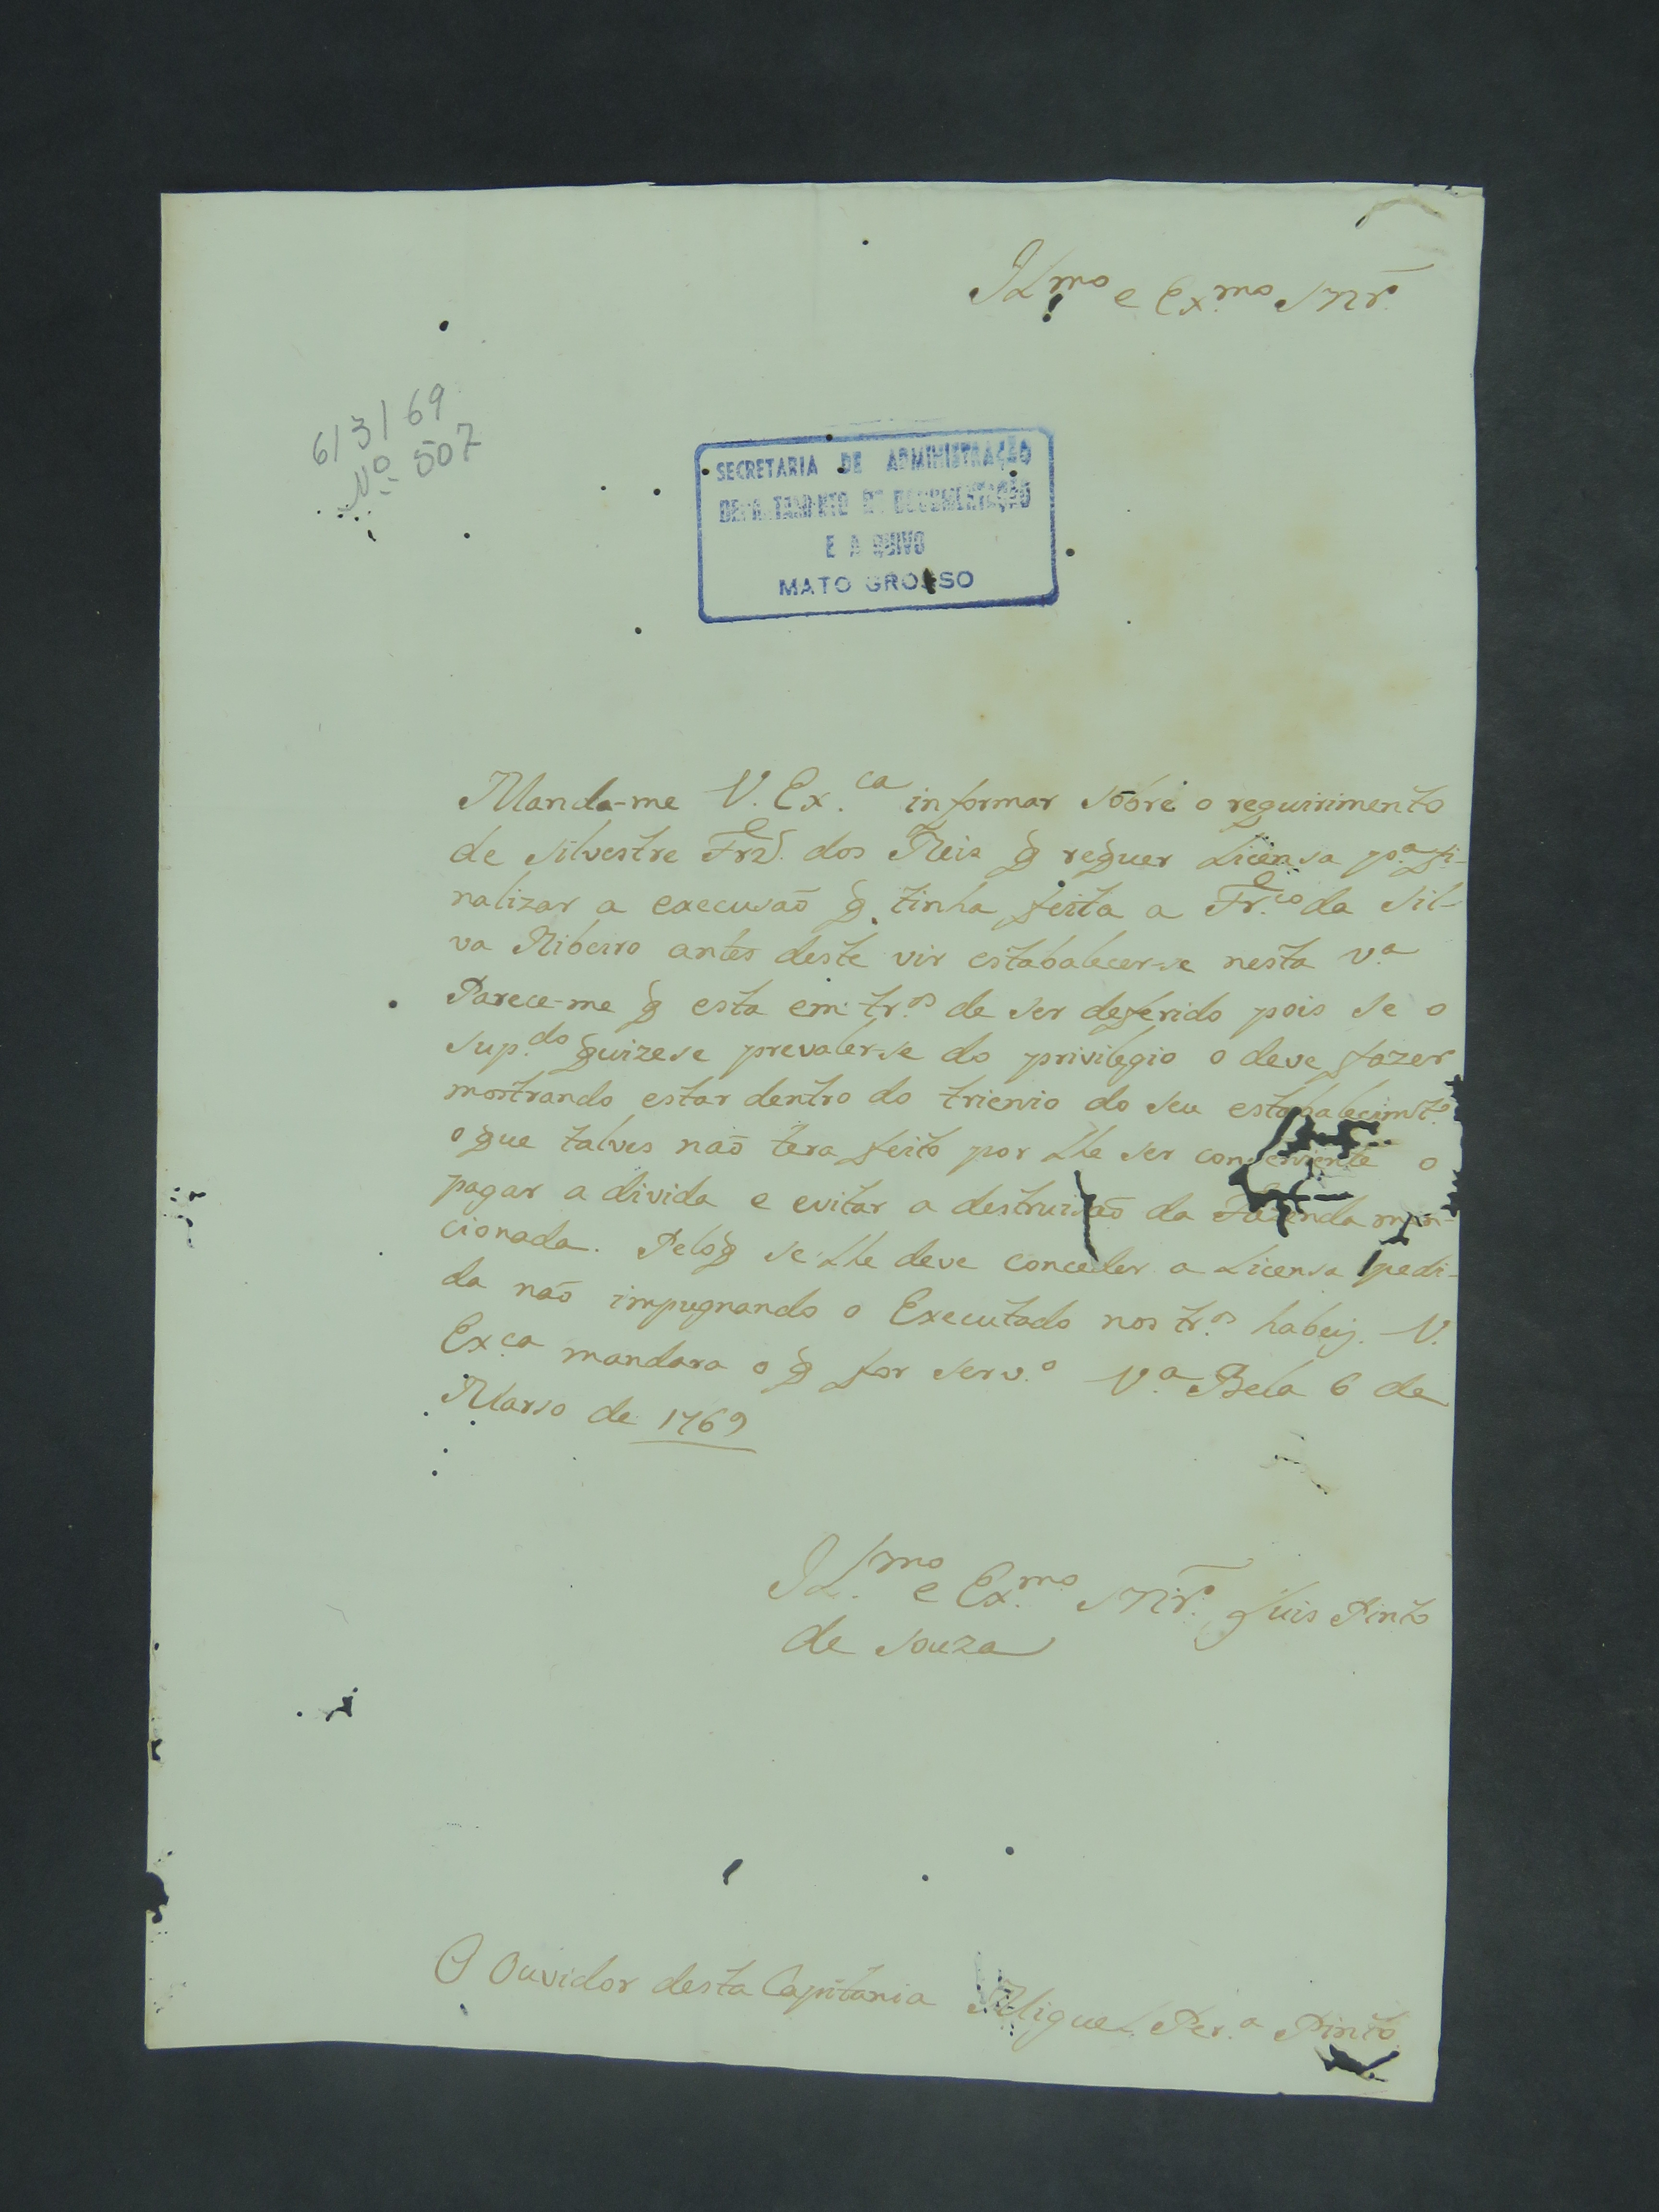 Ill.mo e Ex.mo Snr.
6/3/69
Nº 507
SECRETARIA DE ADMINISTRAÇÃO
DEPARTAMENTO DE DOCUMENTAÇÃO
E ARQUIVO
MATO GROSSO
Manda-me V. Ex.ca informar sobre o requirimento
de Silvestre Frz. dos Reis q̃ requer Licensa p.a fi-
nalizar a execusaõ q̃ tinha feita a Fr.co da Sil-
va Ribeiro antes deste vir estabalecer-se nesta V.a
Parece-me q̃ esta em tr.os de ser deferido pois se o
sup.do quizese prevaler-se do privilegio o deve fazer
mostrando estar dentro do trienio do seu estabalecimt.o
o que talves naõ tera feito por lhe ser conveniente o
pagar a divida e evitar a destruisaõ da Fazenda men-
cionada. Pelo q̃ se lhe deve conceder a Licensa pedi-
da naõ impugnando o Executado nos tr.os habeis. V.
Ex.ca mandara o q̃ for serv.o V.a Bela 6 de
Marso de 1769
Ill.mo e Ex.mo Snr. Luis Pinto
de Souza
O Ouvidor desta Capitania Miguel Per.a Pinto